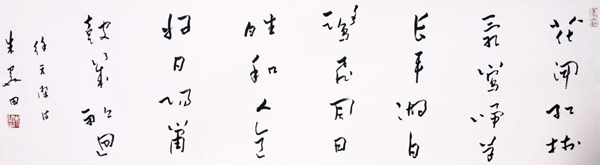 花開紅樹
亂鶯啼草
長平湖白
鷺飛風日
晴和人意
好夕陽簫
鼓幾船
徐元傑詩